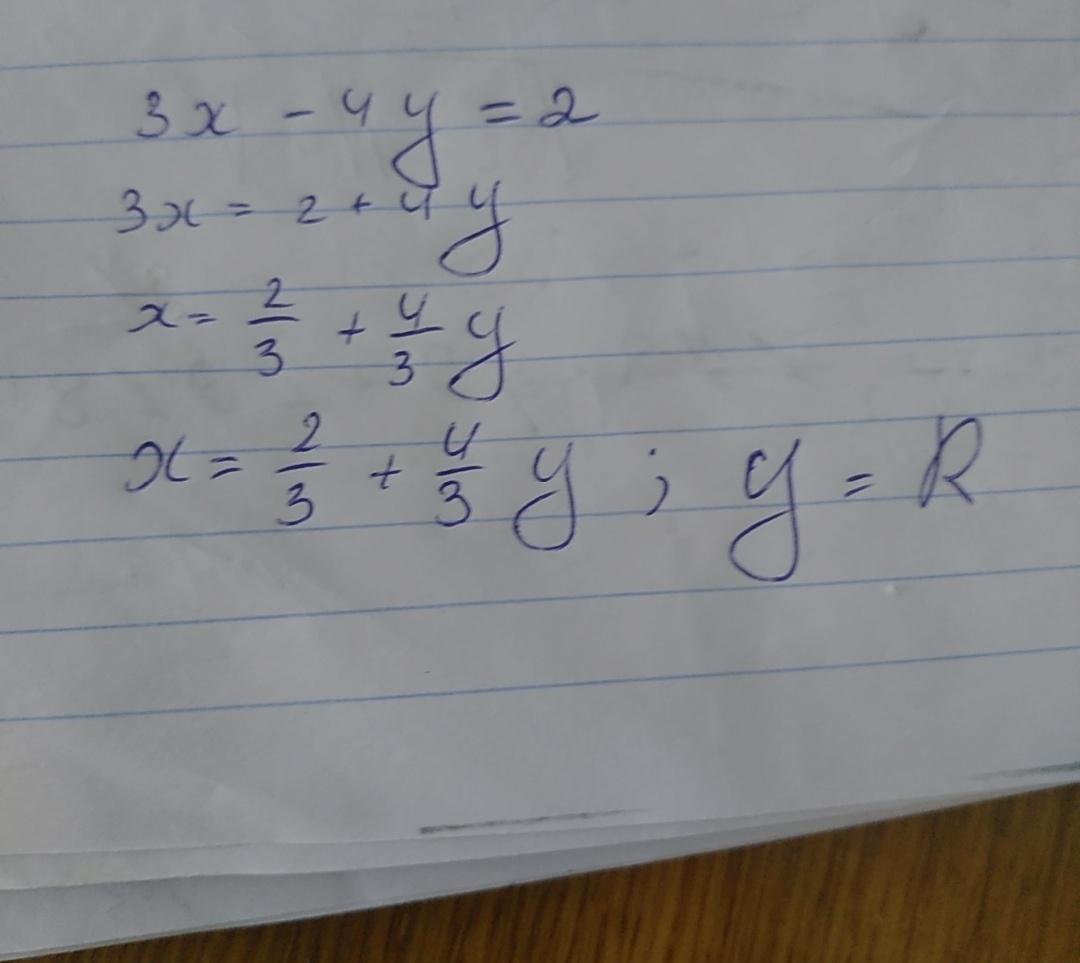 3x - 4y = 2
3x = 2 + 4y
x = 2/3 + 4/3 y
x = 2/3 + 4/3 y ; y = R